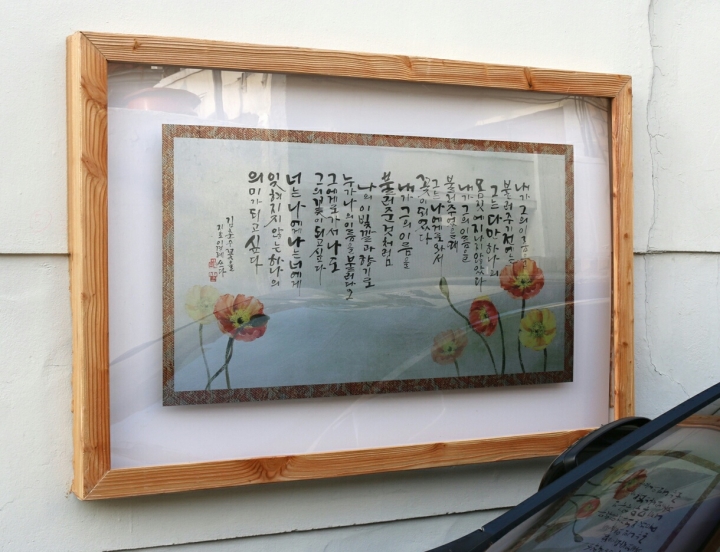 내가 그의 이름을
불러주기 전에는
그는 다만 하나의
몸짓에 지나지 않았다
내가 그의 이름을
불러주었을 때
그는 나에게로 와서
꽃이 되었다
내가 그의 이름을
불러준 것처럼
나의 이 빛깔과 향기로
누가 나의 이름을 불러다오
그에게로 가서 나도
그의 꽃이 되고 싶다
너는 나에게 나는 너에게
잊혀지지 않는 하나의
의미가 되고 싶다
김춘수 꽃으로
쓰다